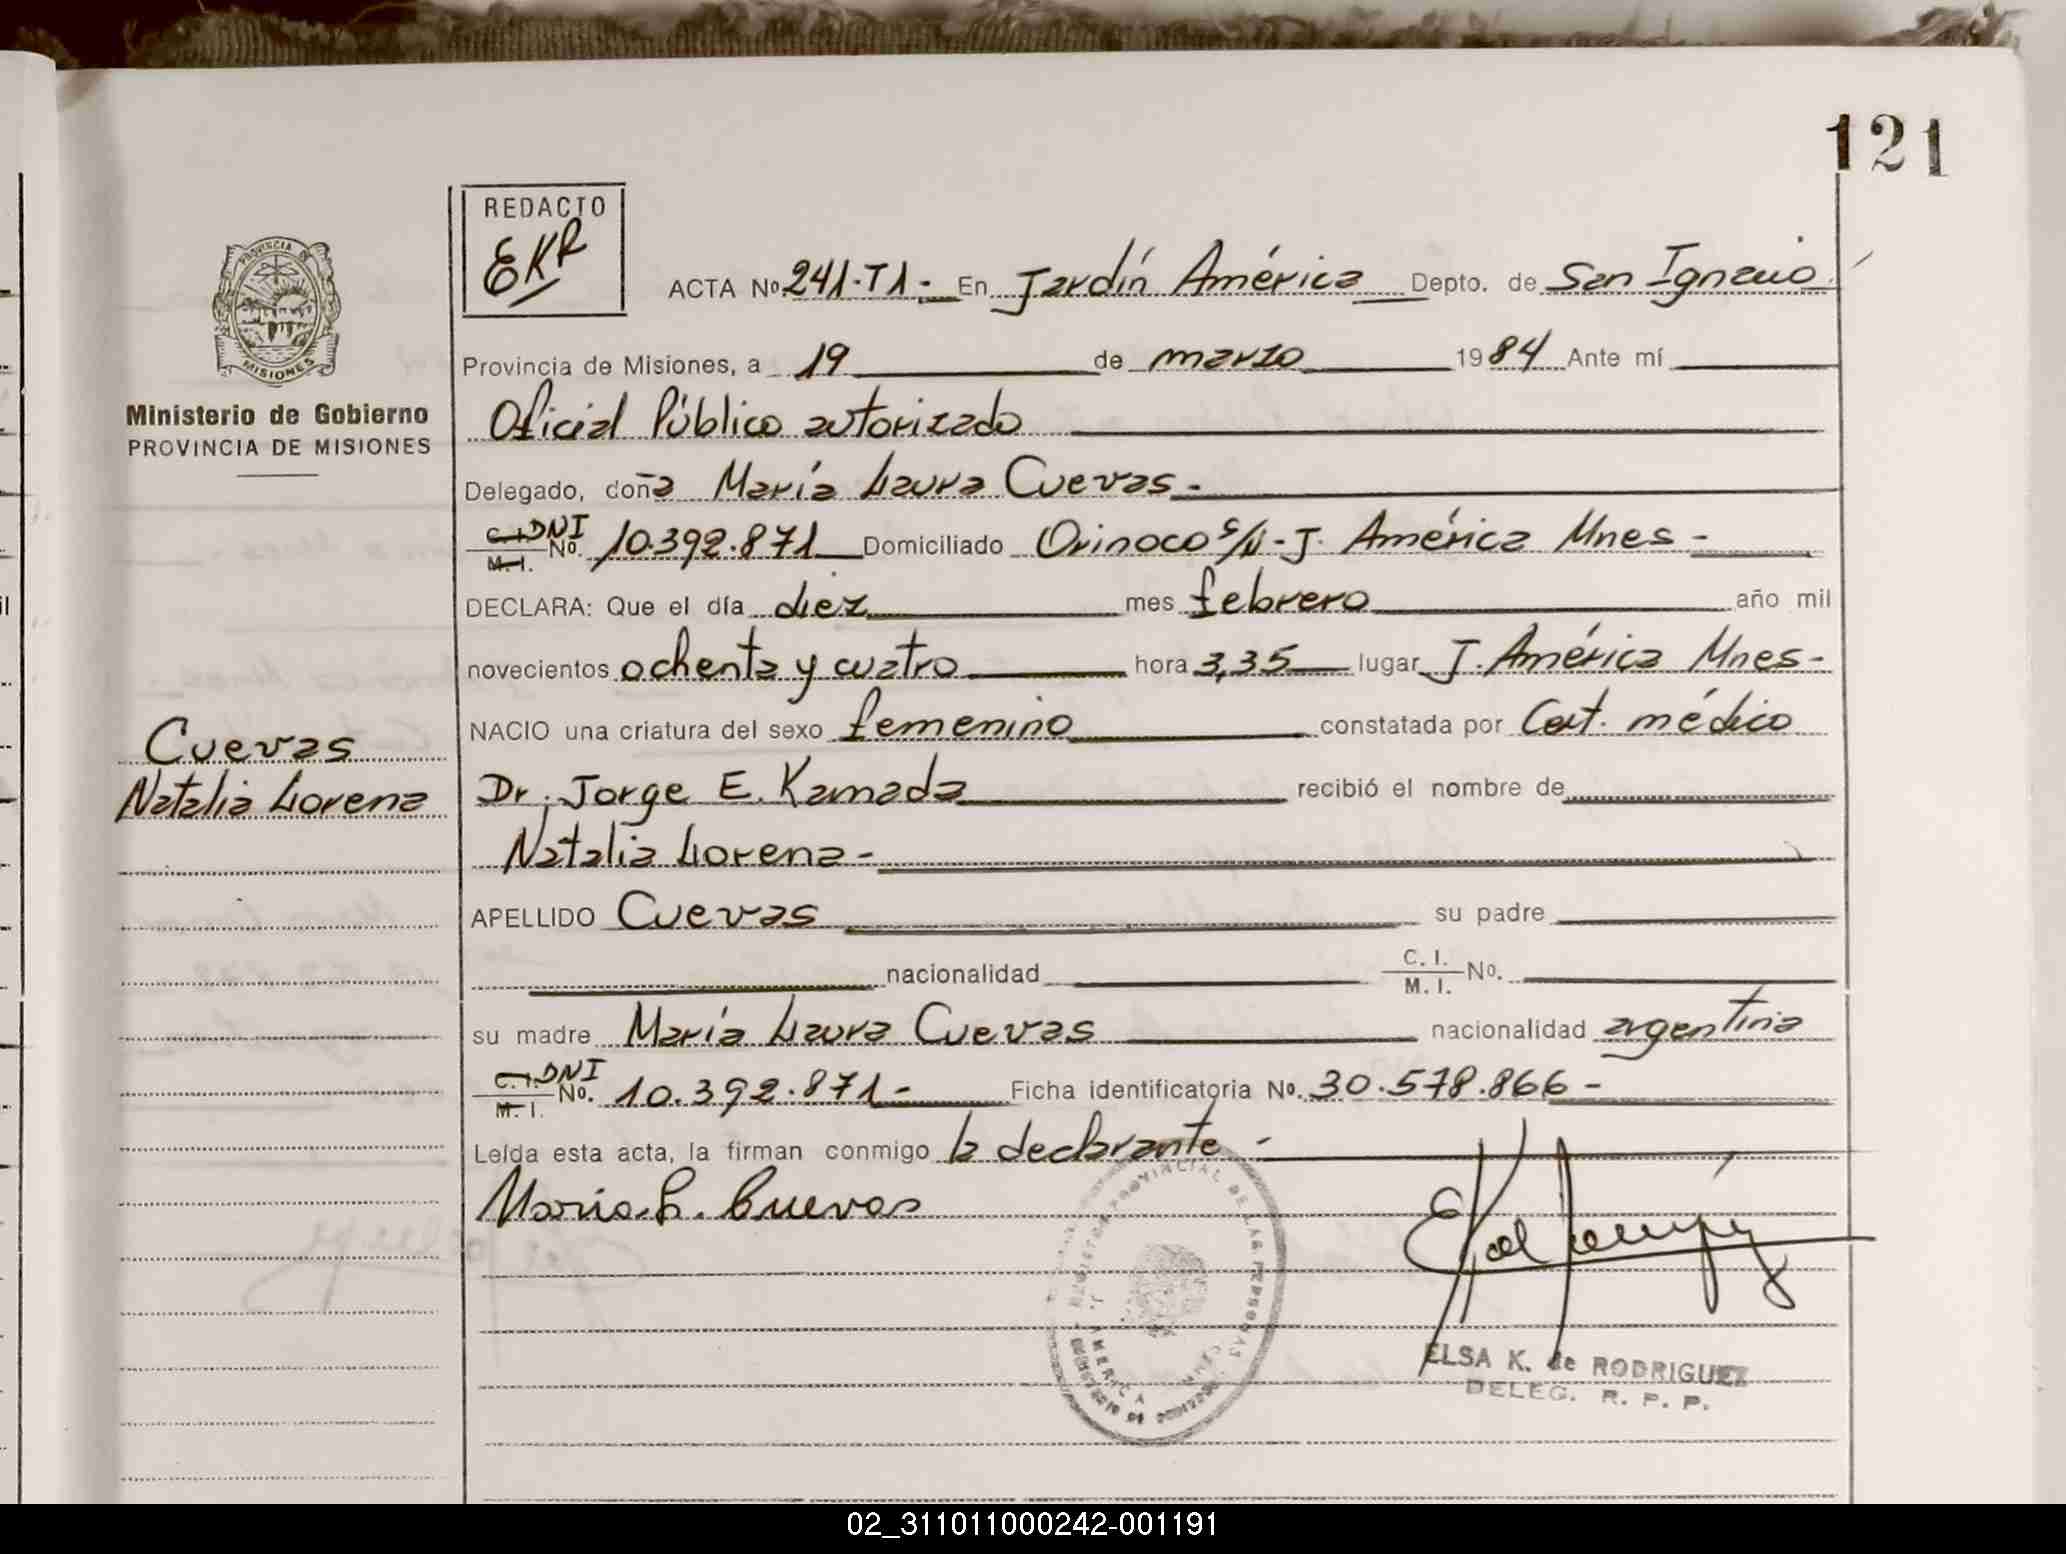 121
REDACTO
EKR
ACTA No. 241-T1- En Jardín América Depto. de San Ignacio
PROVINCIA DE MISIONES
Provincia de Misiones, a 19 de marzo 1984 Ante mí
Ministerio de Gobierno
PROVINCIA DE MISIONES
Oficial Público autorizado
Delegado, doña María Laura Cuevas-
C.I. DNI
M.I. No. 10.392.871 Domiciliado Orinoco s/N - J. América Mnes-
DECLARA: Que el día diez mes febrero año mil
novecientos ochenta y cuatro hora 3,35 lugar J. América Mnes-
NACIO una criatura del sexo femenino constatada por Cert. médico
Cuevas
Natalia Lorena
Dr. Jorge E. Kamada recibió el nombre de
Natalia Lorena-
APELLIDO Cuevas su padre
nacionalidad C.I. M.I. No.
su madre María Laura Cuevas nacionalidad argentina
C.I. DNI
M.I. No. 10.392.871- Ficha identificatoria No. 30.578.866-
Leída esta acta, la firman conmigo la declarante-
María L. Cuevas
REGISTRO PROVINCIAL DE LAS PERSONAS
J. AMERICA
ELSA K. de RODRIGUEZ
DELEG. R. P. P.
02_311011000242-001191